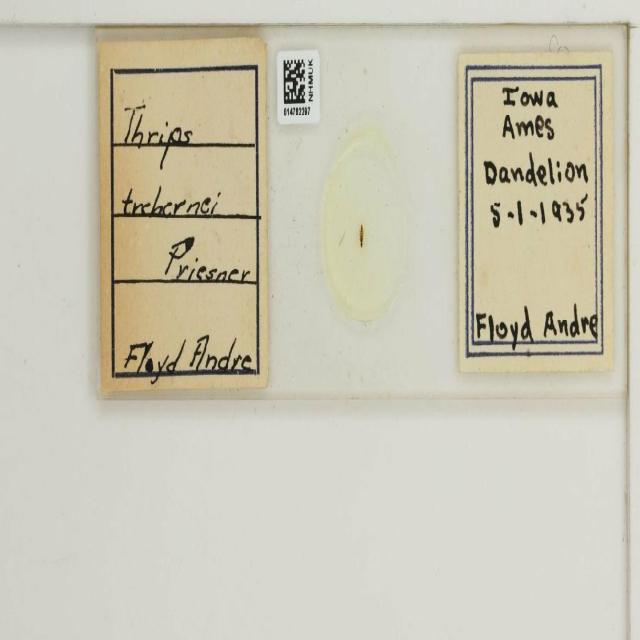 Thrips
trehernei
Priesner
Floyd Andre
NHMUK
Iowa
Ames
Dandelion
5-1-1935
Floyd Andre